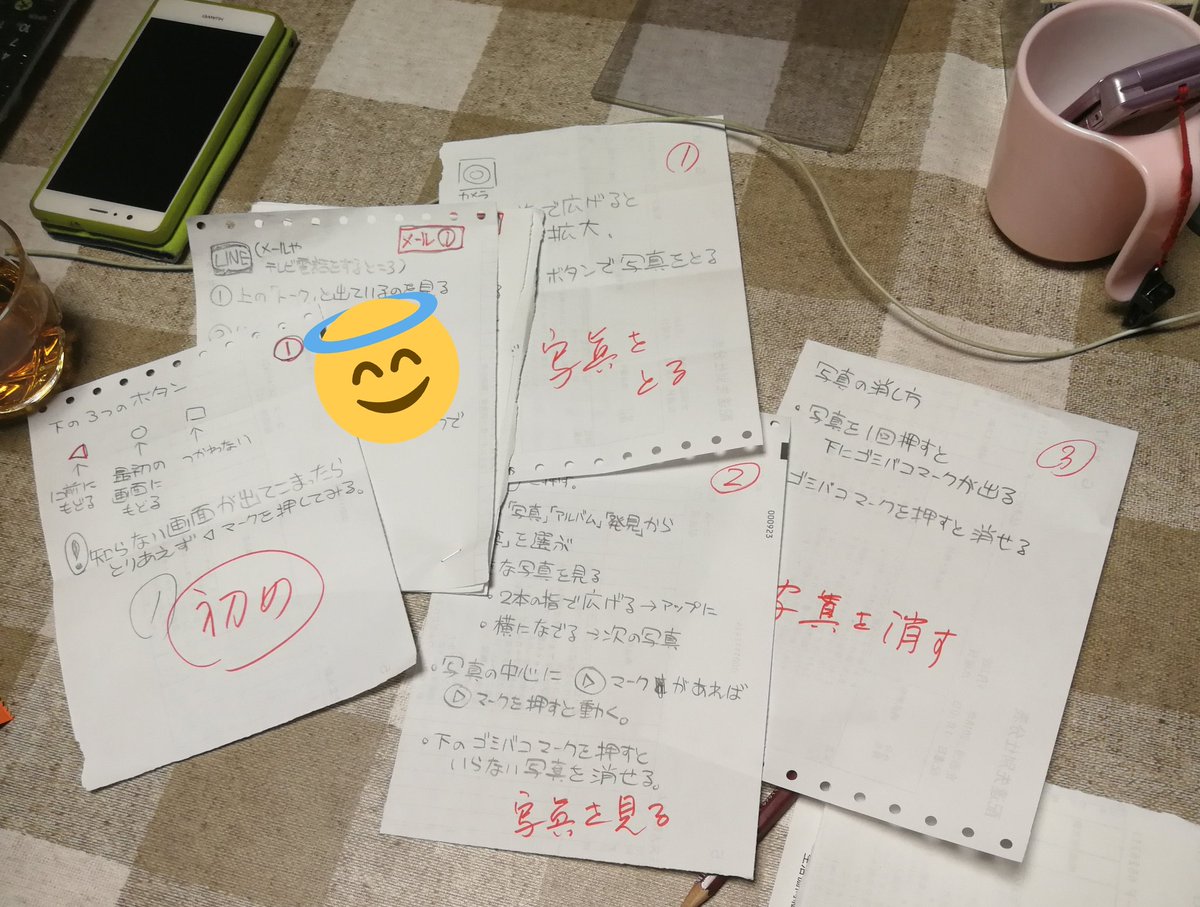 HUAWEI
①
下の3つのボタン
◁ ○ □
↑ ↑ ↑
に前に
もどる
最初の
画面に
もどる
つかわない
! 知らない画面が出てこまったら
とりあえず ◁ マークを押してみる。
① 初め
メール①
LINE (メールや
テレビ電話をするところ)
① 上の「トーク」と出ているのを見る
①
カメラ
で広げると
拡大、
ボタンで写真をとる
写真を
とる
②
「写真」「アルバム」「発見」から
を選ぶ
な写真を見る
・2本の指で広げる→アップに
・横になでる→次の写真
・写真の中心に ▷ マークがあれば
▷ マークを押すと動く。
・下のゴミバコマークを押すと
いらない写真を消せる。
写真を見る
000923
写真の消し方
③
・写真を1回押すと
下にゴミバコマークが出る
ゴミバコマークを押すと消せる
写真を消す